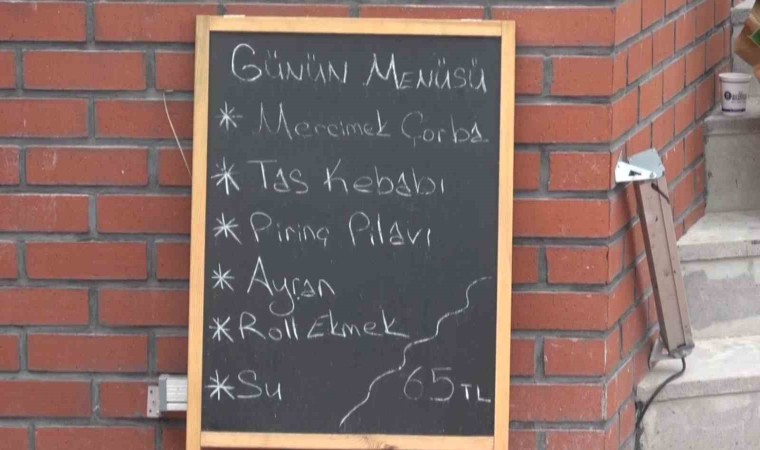 GÜNÜN MENÜSÜ
* Mercimek Çorba
* Tas Kebabı
* Pirinç Pilavı
* Ayran
* Roll Ekmek
* Su 65 TL